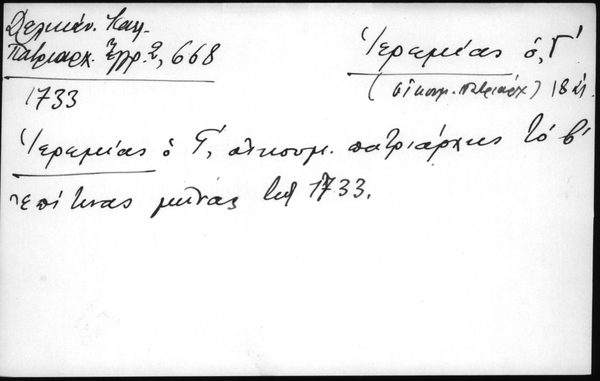 Δελικάν. Καλ.
Πατριαρχ. Ἔγγρ. 2, 668
1733
Ἱερεμίας ὁ, Γ΄
(οἰκουμ. πατριάρχ)
Ἱερεμίας ὁ Γ΄, οἰκουμ. πατριάρχης τὸ β΄
ἐπί τινας μῆνας τοῦ 1733.